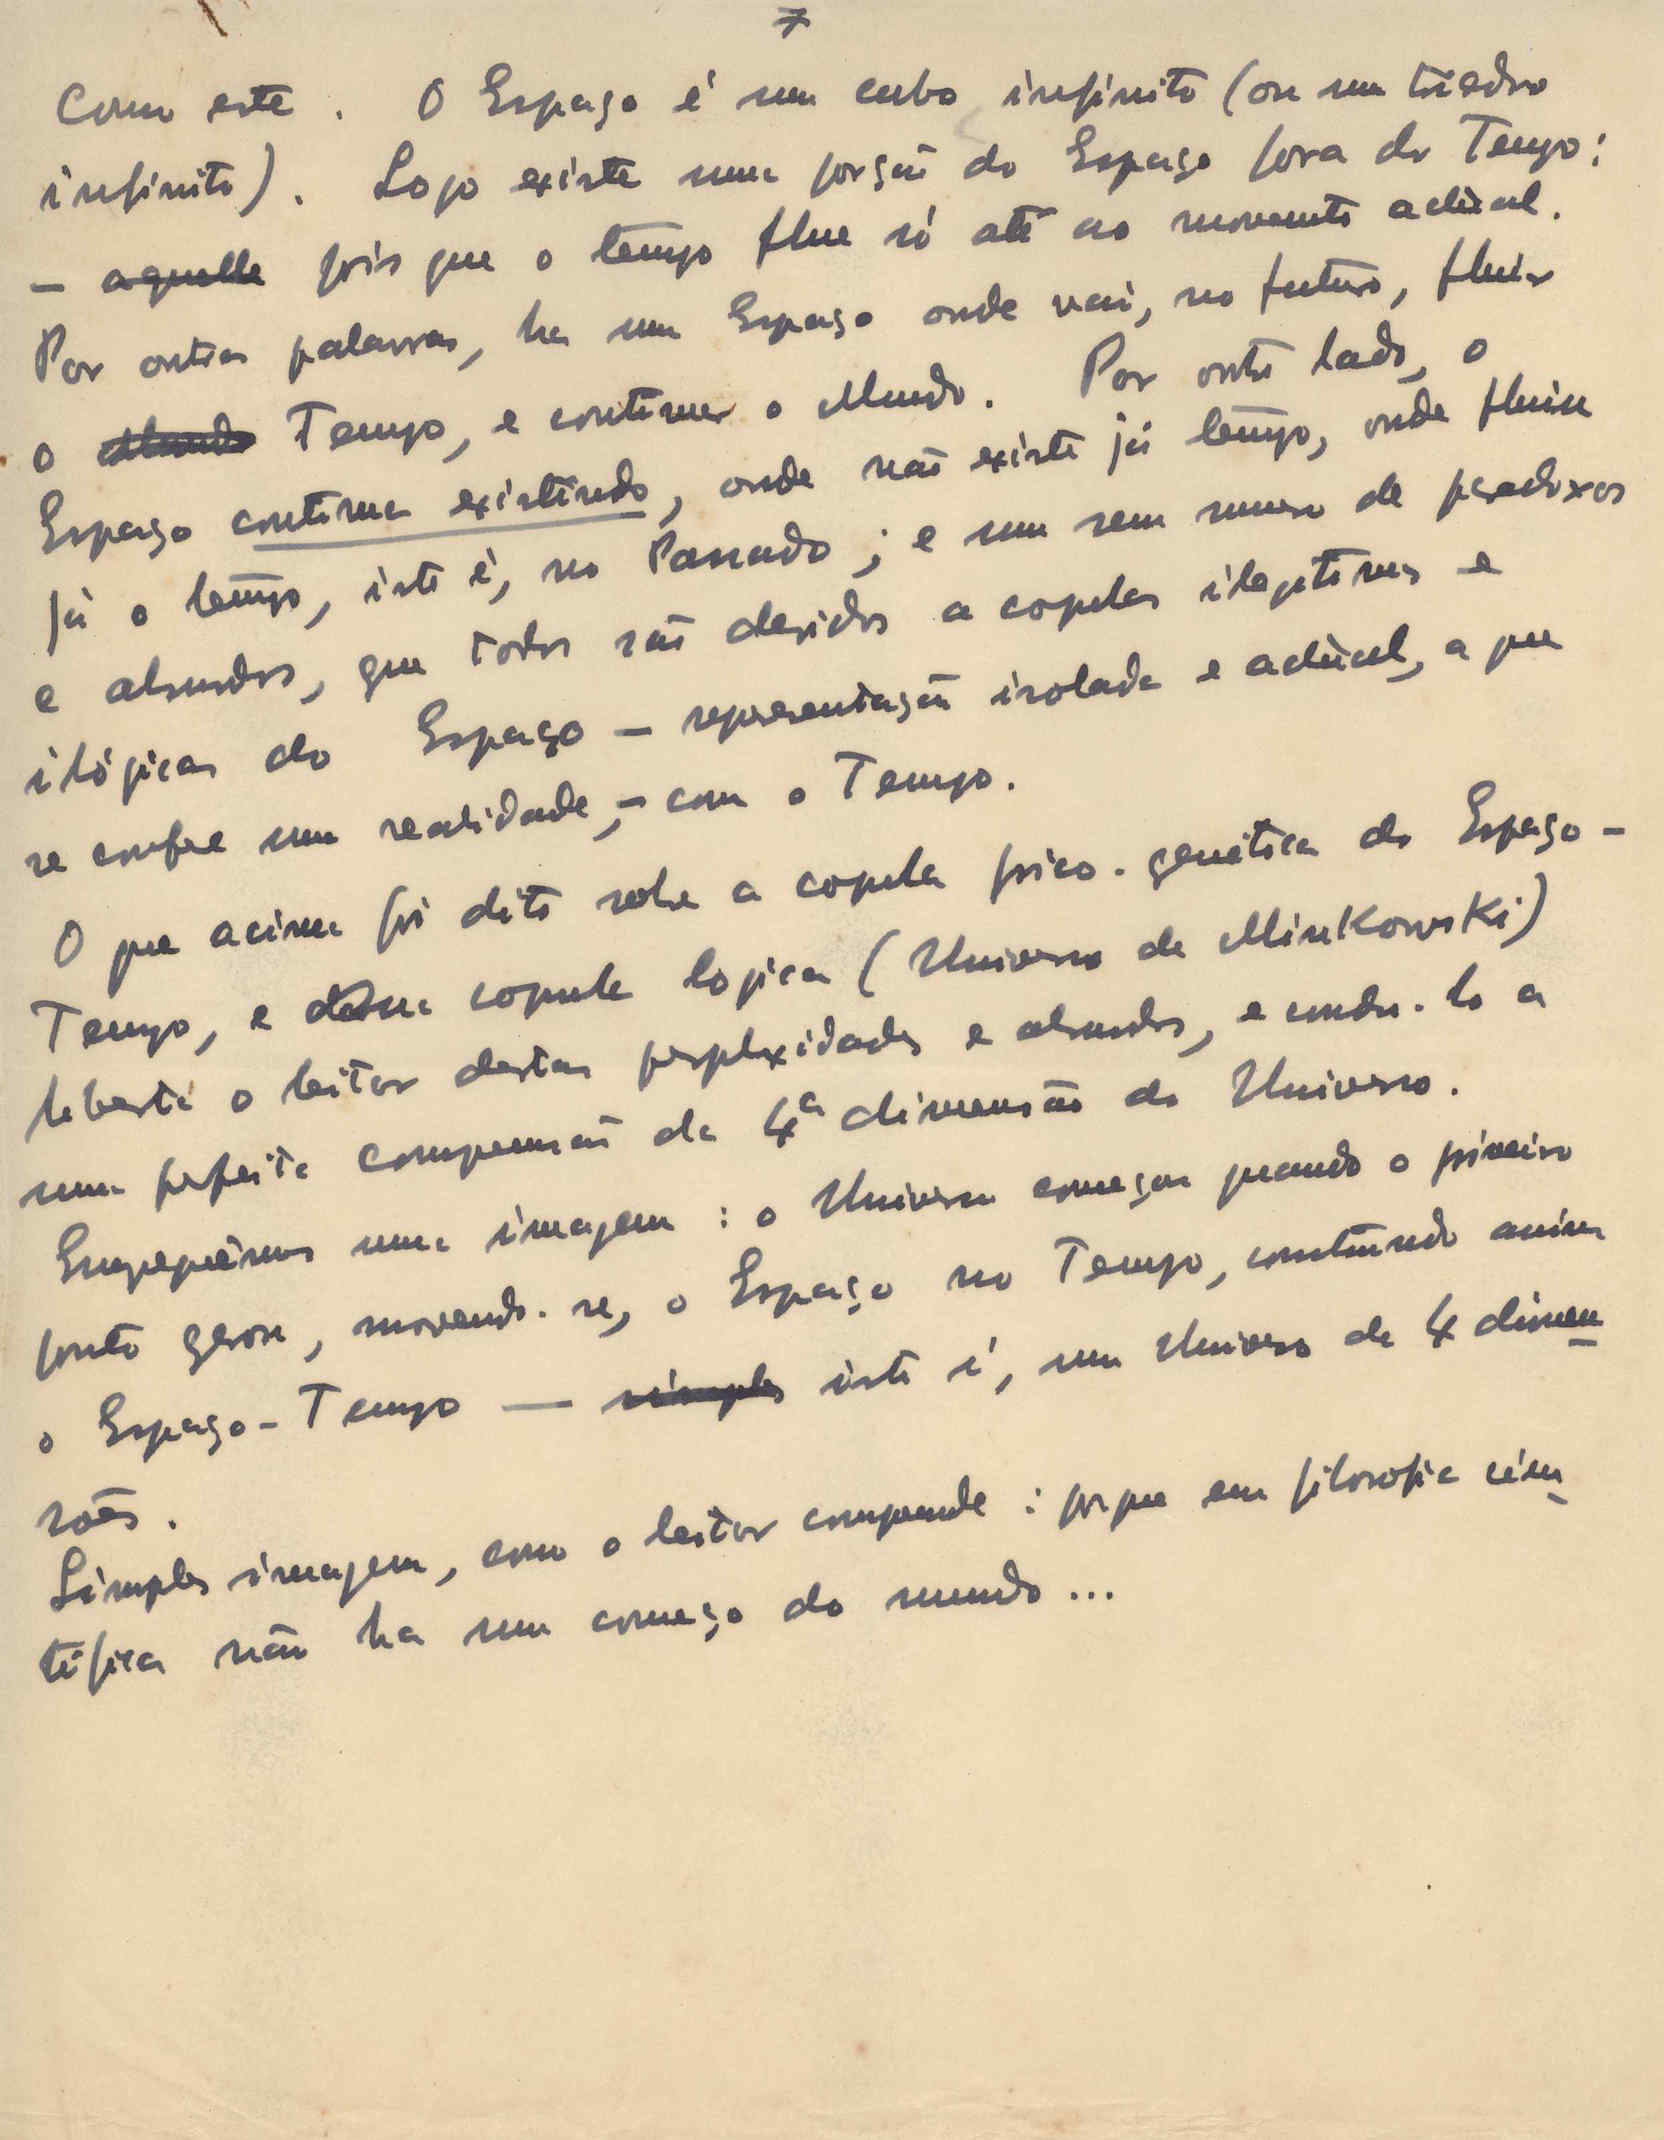 7
Como este. O Espaço é um cubo infinito (ou um triedro
infinito). Logo existe uma porção do Espaço fora do Tempo:
— aquella pois que o tempo flue só até ao momento actùal.
Por outras palavras, ha um Espaço onde vai, no futuro, fluir
o Mundo Tempo, e continuar o Mundo. Por outro lado, o
Espaço continua existindo, onde não existe já tempo, onde fluiu
já o tempo, isto é, no Passado; e um sem numero de paradoxos
e absurdos, que todos são devidos a copulas ilegitimas e
ilógicas do Espaço — representação isolada e actùal, a que
se confere uma realidade, — com o Tempo.
O que acima foi dito sobre a copula psico-genética do Espaço-
Tempo, e copula logica (Universo de Minkowski)
liberta o leitor destas perplexidades e absurdos, e conduz-lo a
uma perfeita compreensão da 4ª dimensão do Universo.
Empreguemos uma imagem: o Universo começou quando o primeiro
ponto gerou, movendo-se, o Espaço no Tempo, constituindo assim
o Espaço-Tempo — simples isto é, um Universo de 4 dimen
sões.
Simples imagem, como o leitor compreende: porque em filosofia cien
tífica não ha um começo do mundo...